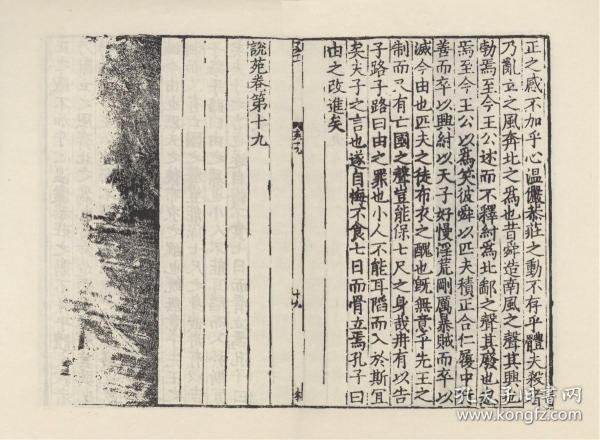 正之感不加乎心温儼恭莊之動不存乎體夫殺者
乃亂亡之風奔北之爲也昔舜造南風之聲其興也
勃焉至今王公述而不釋紂爲北鄙之聲其廢也忽
焉至今王公以爲笑彼舜以匹夫積正合仁履中行
善而卒以興紂以天子好慢淫荒剛厲暴賊而卒以
滅今由也匹夫之徒布衣之醜也旣無意乎先王之
制而又有亡國之聲豈能保七尺之身哉冉有以告
子路子路曰由之罪也小人不能耳陷而入於斯宜
矣夫子之言也遂自悔不食七日而骨立焉孔子曰
由之改進矣
說苑卷第十九
孔夫子旧书网
www.kongfz.com